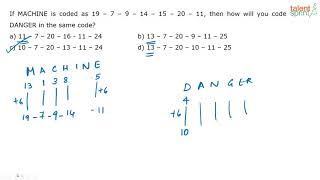 talent
If MACHINE is coded as 19 – 7 – 9 – 14 – 15 – 20 – 11, then how will you code
DANGER in the same code?
a) 11 – 7 – 20 – 16 – 11 – 24
b) 13 – 7 – 20 – 9 – 11 – 25
c) 10 – 7 – 20 – 13 – 11 – 24
d) 13 – 7 – 20 – 10 – 11 – 25
M A C H I N E
13 1 3 8 5
+6 +6
19 – 7 – 9 – 14 – 11
D A N G E R
4
+6
10